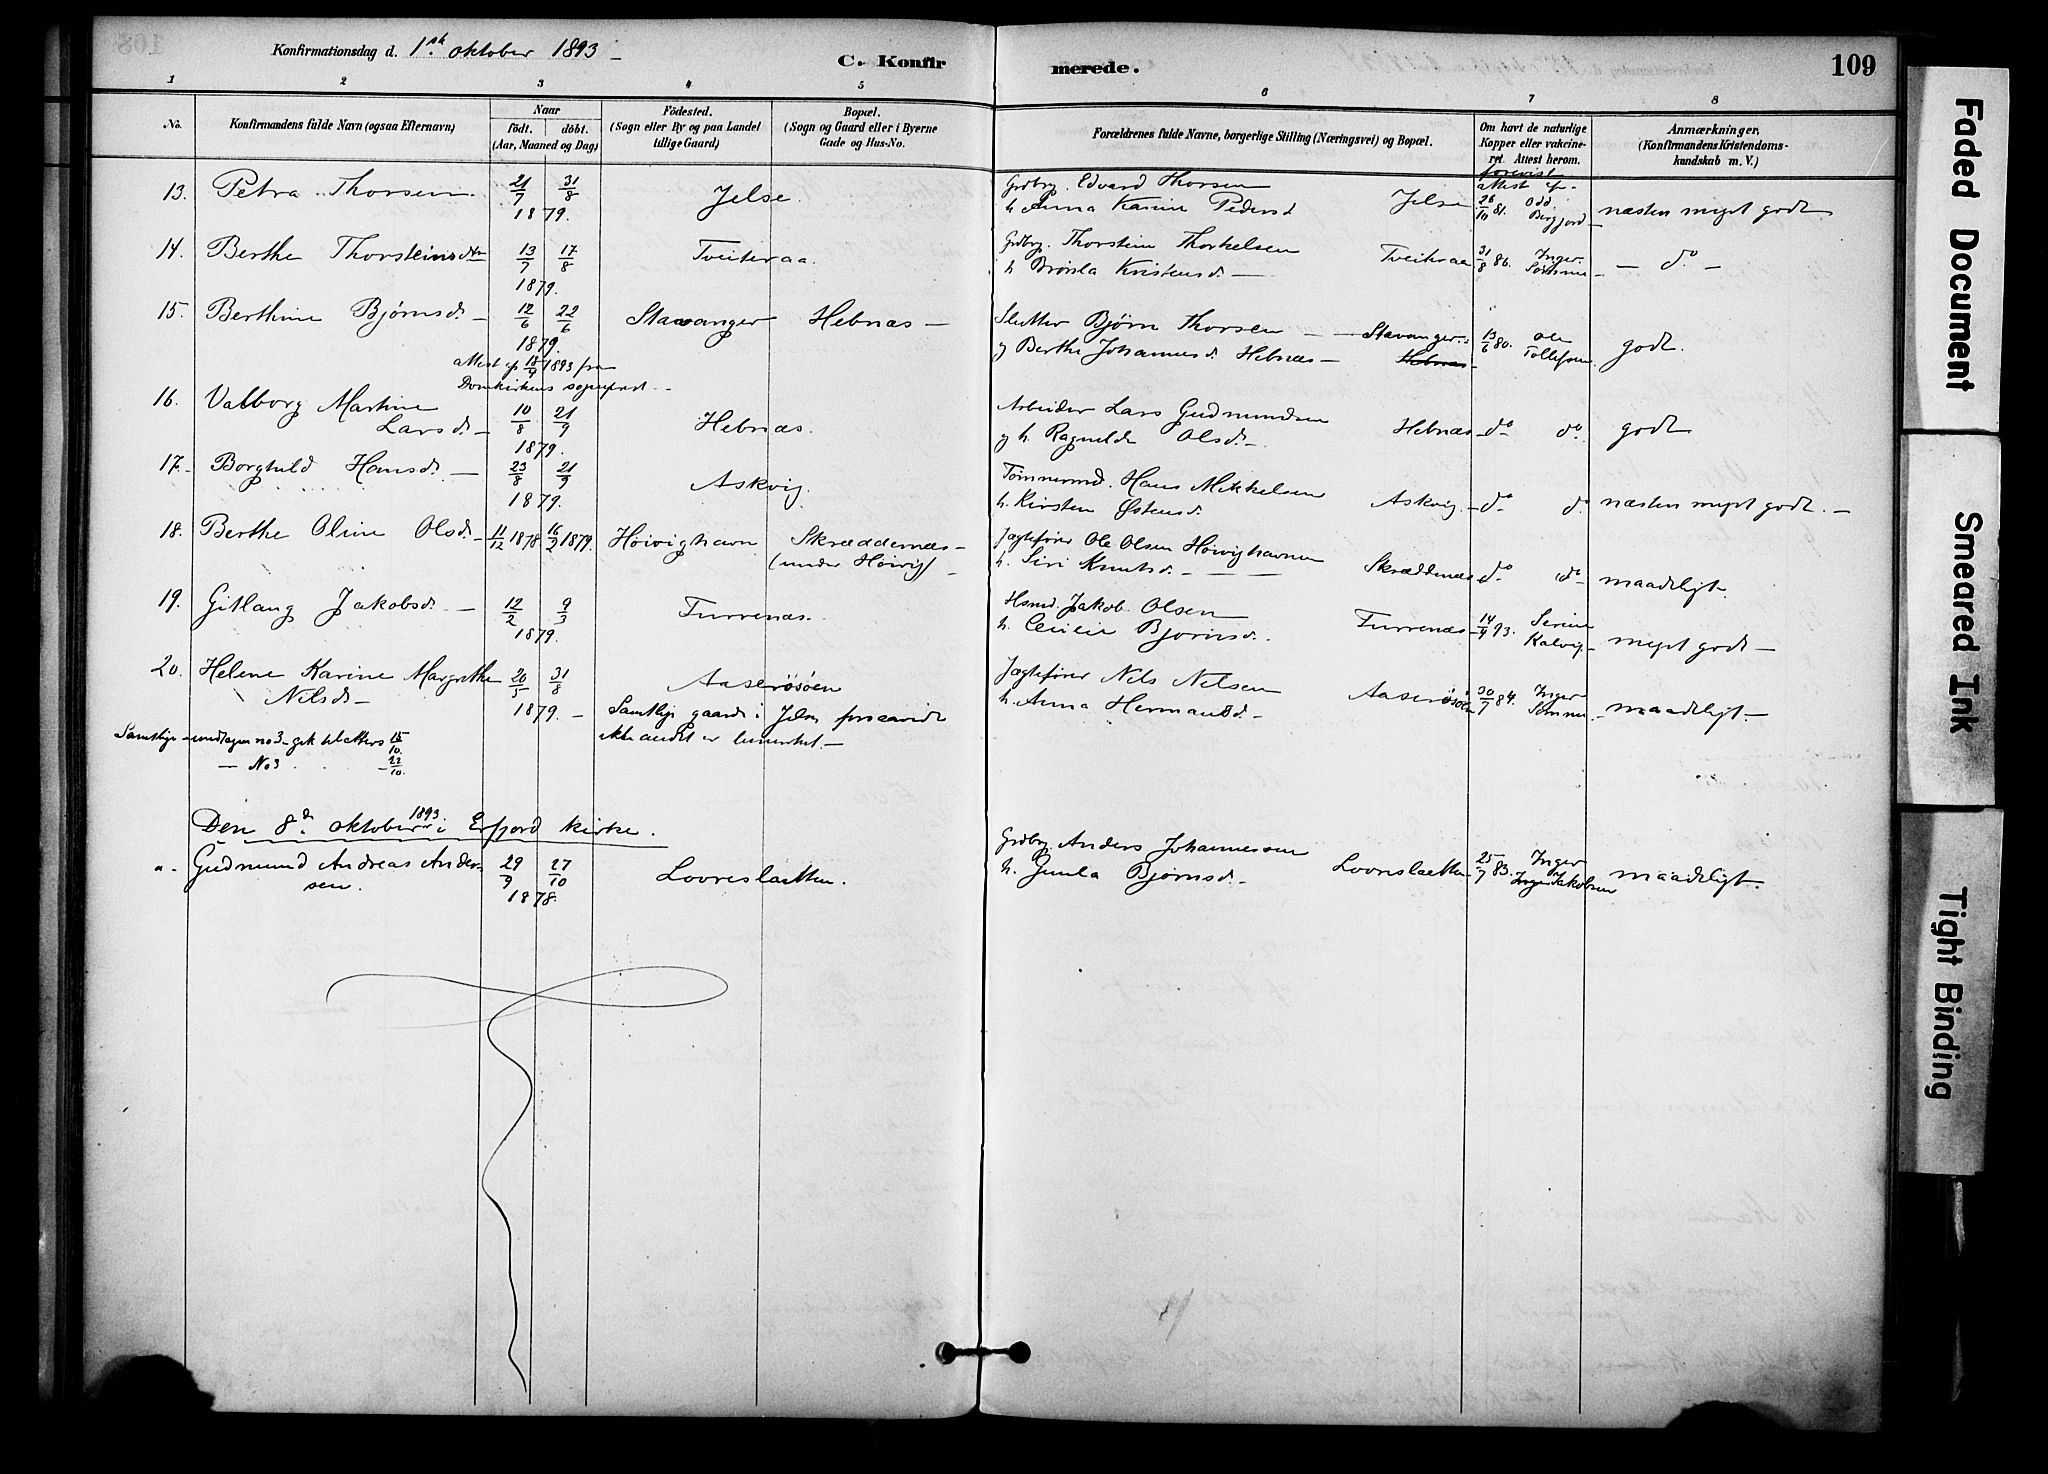 Konfirmationsdag d. 1ste oktober 1893
C. Konfirmerede.
109
1 2 3 4 5 6 7 8
No.
Konfirmandens fulde Navn (ogsaa Efternavn)
Naar
födt. döbt.
(Aar, Maaned og Dag)
Födested.
(Sogn eller By og paa Landet
tillige Gaard)
Bopæl.
(Sogn og Gaard eller i Byerne
Gade og Hus-No.
Forældrenes fulde Navne, borgerlige Stilling (Næringsvei) og Bopæl.
Om havt de naturlige
Kopper eller vakcine-
ret. Attest herom.
Anmærkninger,
(Konfirmandens Kristendoms-
kundskab m. V.)
13. Petra Thorsen 21/7 31/8 1879. Jelse.
Grdbrg. Edvard Thorsen
h. Anna Karine Pedersd. Jelse
forevist attest fr. 26/10 81. Odd Bergfjord
næsten meget godt
14. Berthe Thorsteinsdtr 13/7 17/8 1879. Tveiteraa.
Grdbrg. Thorstein Thorkelsen
h. Brönla Kristensd. Tveiteraa
31/8 86. Inger Sömme
do
15. Berthine Bjørnsd. 12/6 22/6 1879. Stavanger Hebnæs
attest af 18/9 1893 fra
Domkirkens sognepræst
Slutter Bjørn Thorsen Stavanger.
og Berthe Johannesd. Hebnæs Hebnæs
13/6 80. Ole Tollefsen.
godt.
16. Valborg Martine
Larsd. 10/8 21/9 1879. Hebnæs.
Arbeider Lars Gudmundsen
og h. Ragnilde Olsd. Hebnæs
do do godt
17. Borghild Hansd. 23/8 21/9 1879. Askvig.
Tømmermd. Hans Mikkelsen
h. Kirsten Østensd. Askvig.
do do næsten meget godt.
18. Berthe Oline Olsd. 11/12 1878 16/2 1879. Høivighavn Skræddernæs
(under Høivig)
Jægtefører Ole Olsen Høivighavnen
h. Siri Knutsd. Skræddnæs
do do maadeligt
19. Gitlaug Jakobsd. 12/2 9/3 1879. Furrenæs.
Hsmd. Jakob Olsen
h. Cecilie Bjørnsd. Furrenæs
14/9 93. Serine Kalvig
meget godt
20. Helene Karine Margrethe
Nilsd. 20/5 31/8 1879. Aaserøsøen
Jægtefører Nils Nilsen
h. Anna Hermansd. Aaserøsøen
30/7 84. Inger Sömme
maadeligt.
Samtlige gaarde i Jelse forsaavidt
ikke andet er bemerket.
Samtlige undtagen no 3 gik til alters 15/10.
No 3 22/10.
Den 8de oktober 1893 i Erfjord kirke.
Gudmund Andreas Ander-
sen. 29/9 27/10 1878. Lovreslætten.
Grdbrg. Anders Johannessen
h. Gunla Bjørnsd. Lovreslætten
25/7 83. Inger Jakobsen
maadeligt.
Faded Document
Smeared Ink
Tight Binding